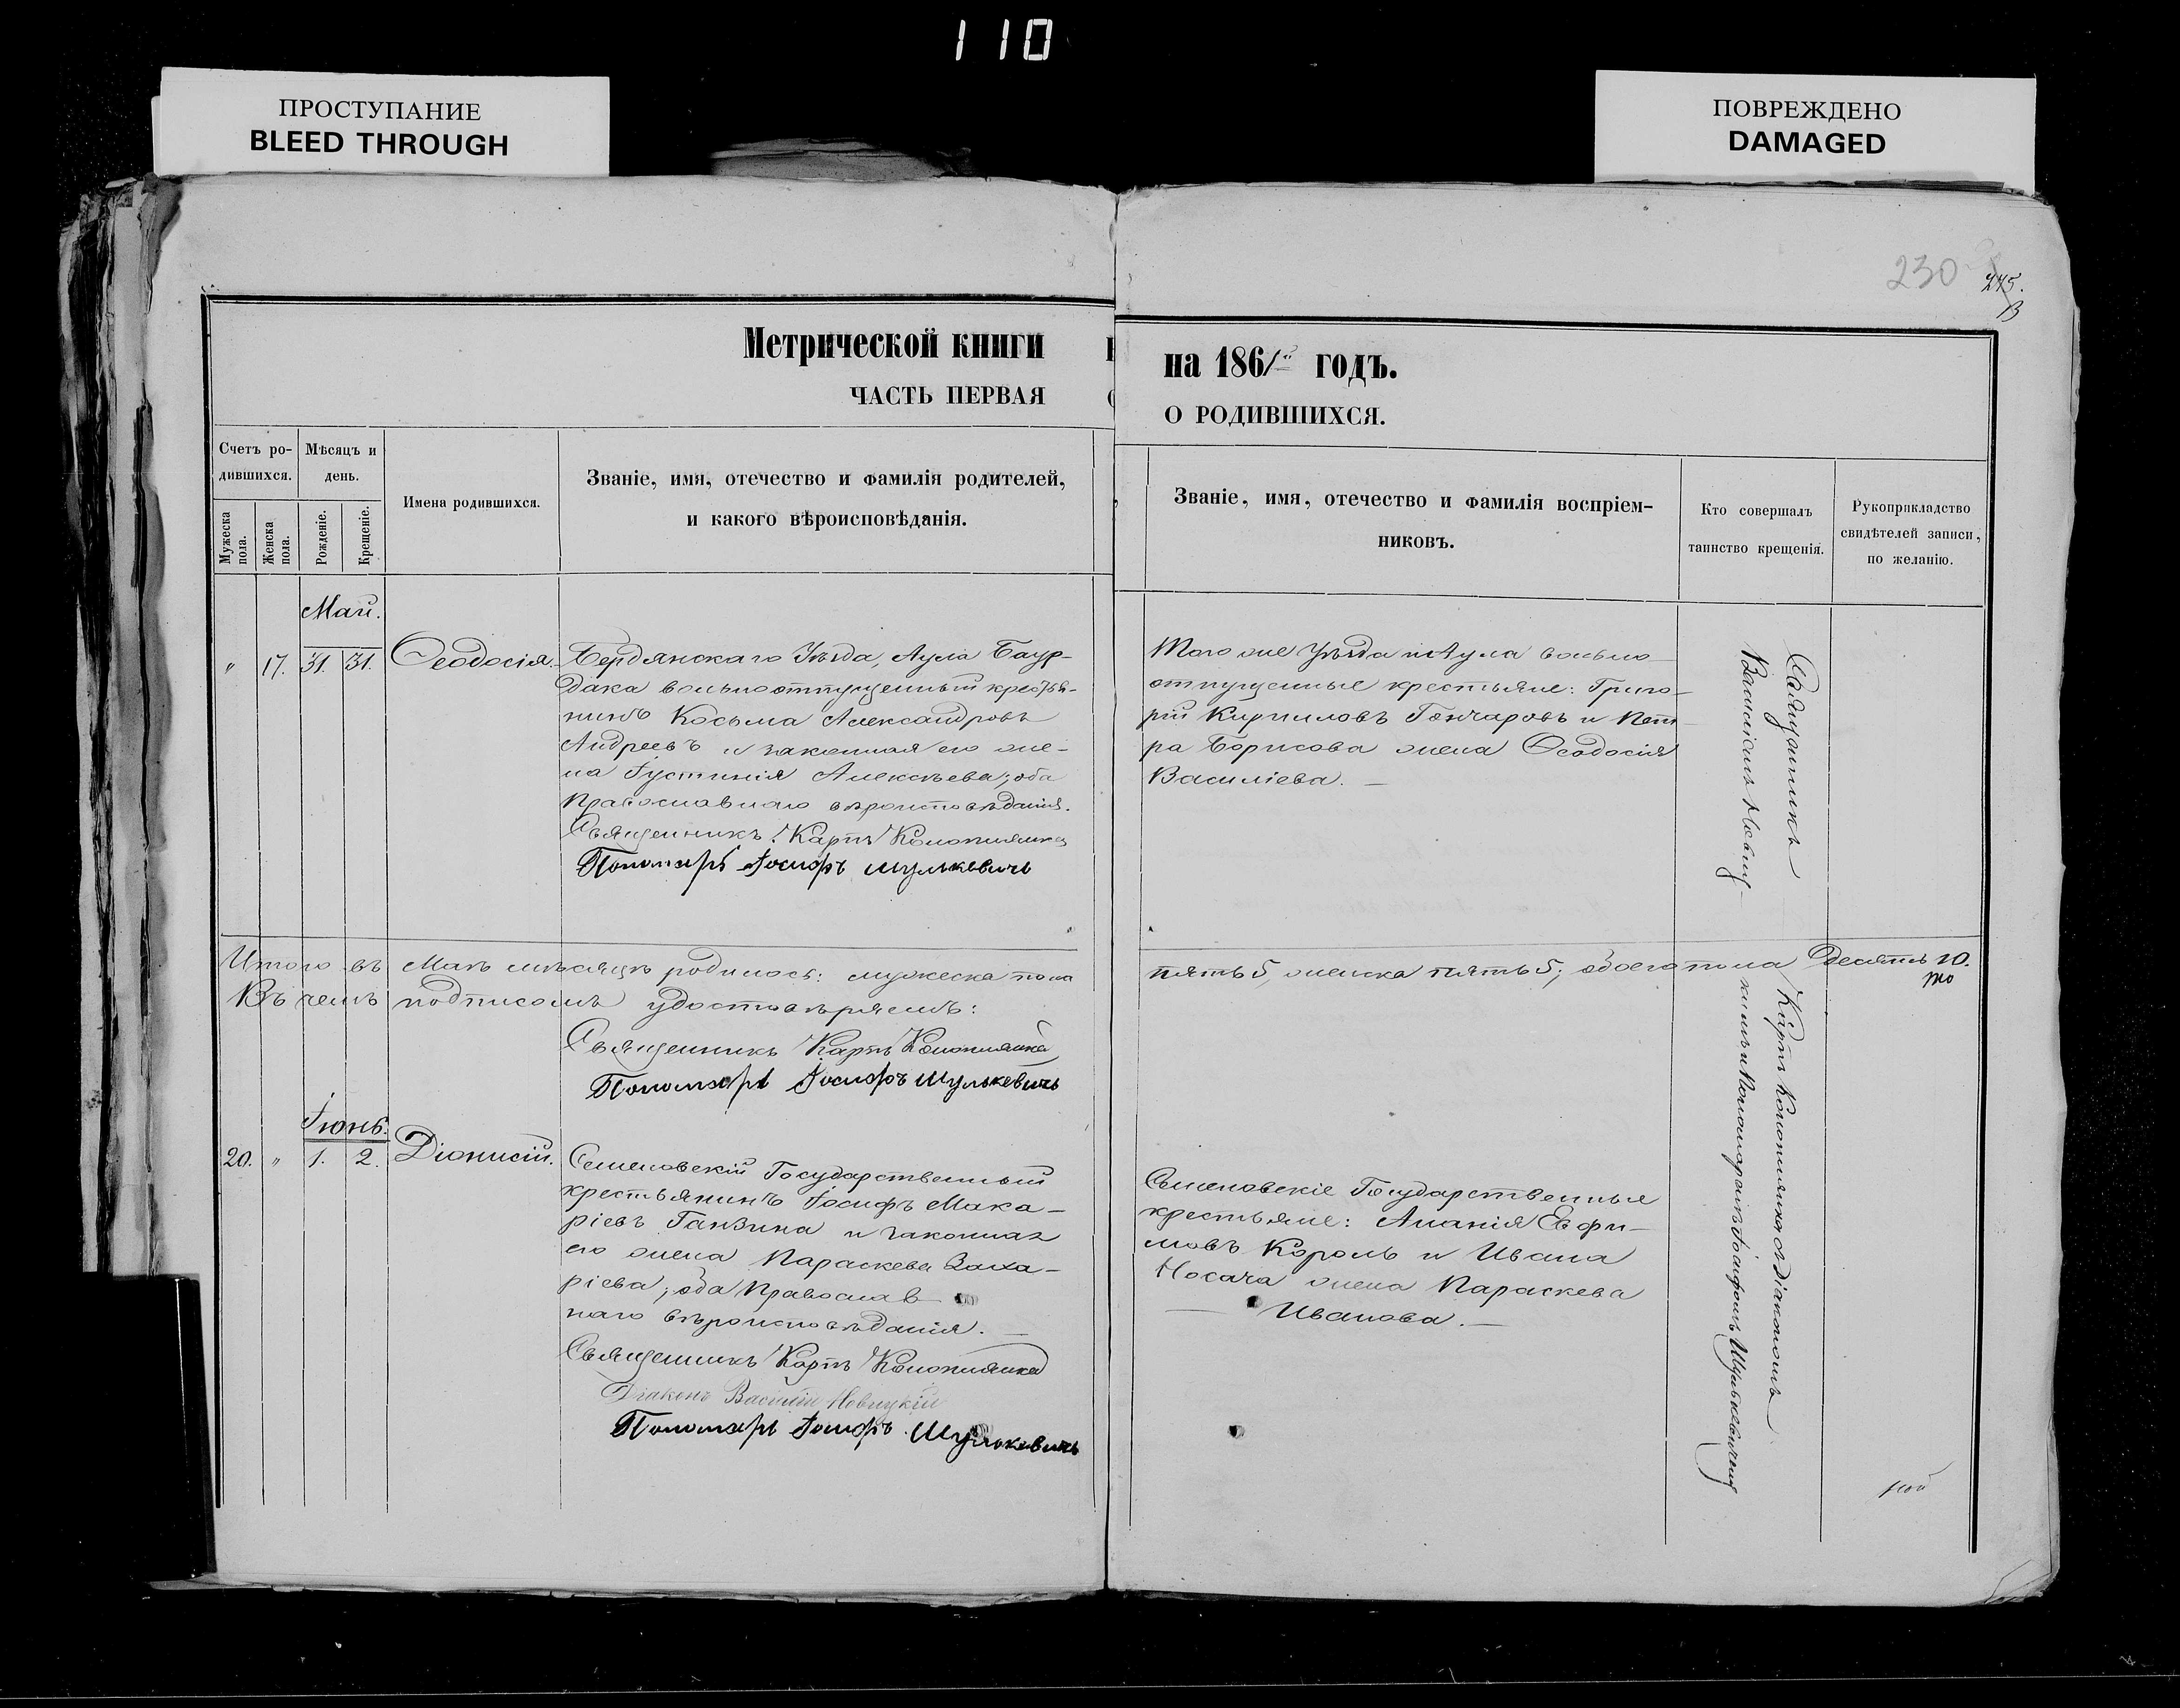 110
ПРОСТУПАНИЕ
BLEED THROUGH
ПОВРЕЖДЕНО
DAMAGED
230
275.
Метрической книги
ЧАСТЬ ПЕРВАЯ
на 1861 годъ.
О РОДИВШИХСЯ.
Счетъ ро-
дившихся.
Мужеска
пола.
Женска
пола.
Мѣсяцъ и
день.
Рожденіе.
Крещеніе.
Имена родившихся.
Званіе, имя, отечество и фамилія родителей,
и какого вѣроисповѣданія.
Званіе, имя, отечество и фамилія воспріем-
никовъ.
Кто совершалъ
таинство крещенія.
Рукоприкладство
свидѣтелей записи,
по желанію.
Май.
" 17. 31. 31. Ѳеодосія.
Бердянскаго Уѣзда, Аула Баур-
дака вольноотпущенный крестья-
нинъ Косьма Александровъ
Андреевъ и законная его же-
на Іустинія Алексѣева; оба
Православнаго вѣроисповѣданія.
Священникъ Карпъ Конопляика
Пономарь Іосифъ Шулькевичь
Того же Уѣзда и Аула вольно-
отпущенные крестьяне: Григо-
рій Кирилловъ Гончаровъ и Пет-
ра Борисова жена Ѳеодосія
Василіева. —
Священникъ
Итого въ Маѣ мѣсяцѣ родилось: мужеска пола
пять 5, женска пять 5; обоего пола десять 10.
Въ чемъ подписомъ удостовѣряемъ:
Священникъ Карпъ Конопляика
Пономарь Іосифъ Шулькевичь
то
Іюнь.
20. " 1. 2. Діонисій.
Семеновскій Государственный
крестьянинъ Іосифъ Мака-
ріевъ Ганзина и законная
его жена Параскева Заха-
ріева; оба Православ
наго вѣроисповѣданія. —
Священникъ Карпъ Конопляика
Діаконъ Василій Новицкій
Пономарь Іосифъ Шулькевичь
Семеновскіе Государственные
крестьяне: Ананія Евфи-
мовъ Король и Ивана
Носача жена Параскева
— Иванова. —
Карпъ Конопляика съ Діакономъ
и Пономаремъ Іосифомъ Шулькевичемъ
ной